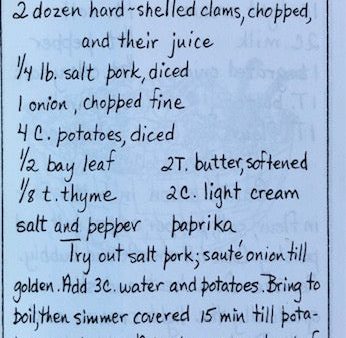 2 dozen hard-shelled clams, chopped,
and their juice
1/4 lb. salt pork, diced
1 onion, chopped fine
4 C. potatoes, diced
1/2 bay leaf 2T. butter, softened
1/8 t. thyme 2C. light cream
salt and pepper paprika
Try out salt pork; sauté onion till
golden. Add 3c. water and potatoes. Bring to
boil, then simmer covered 15 min till pota-